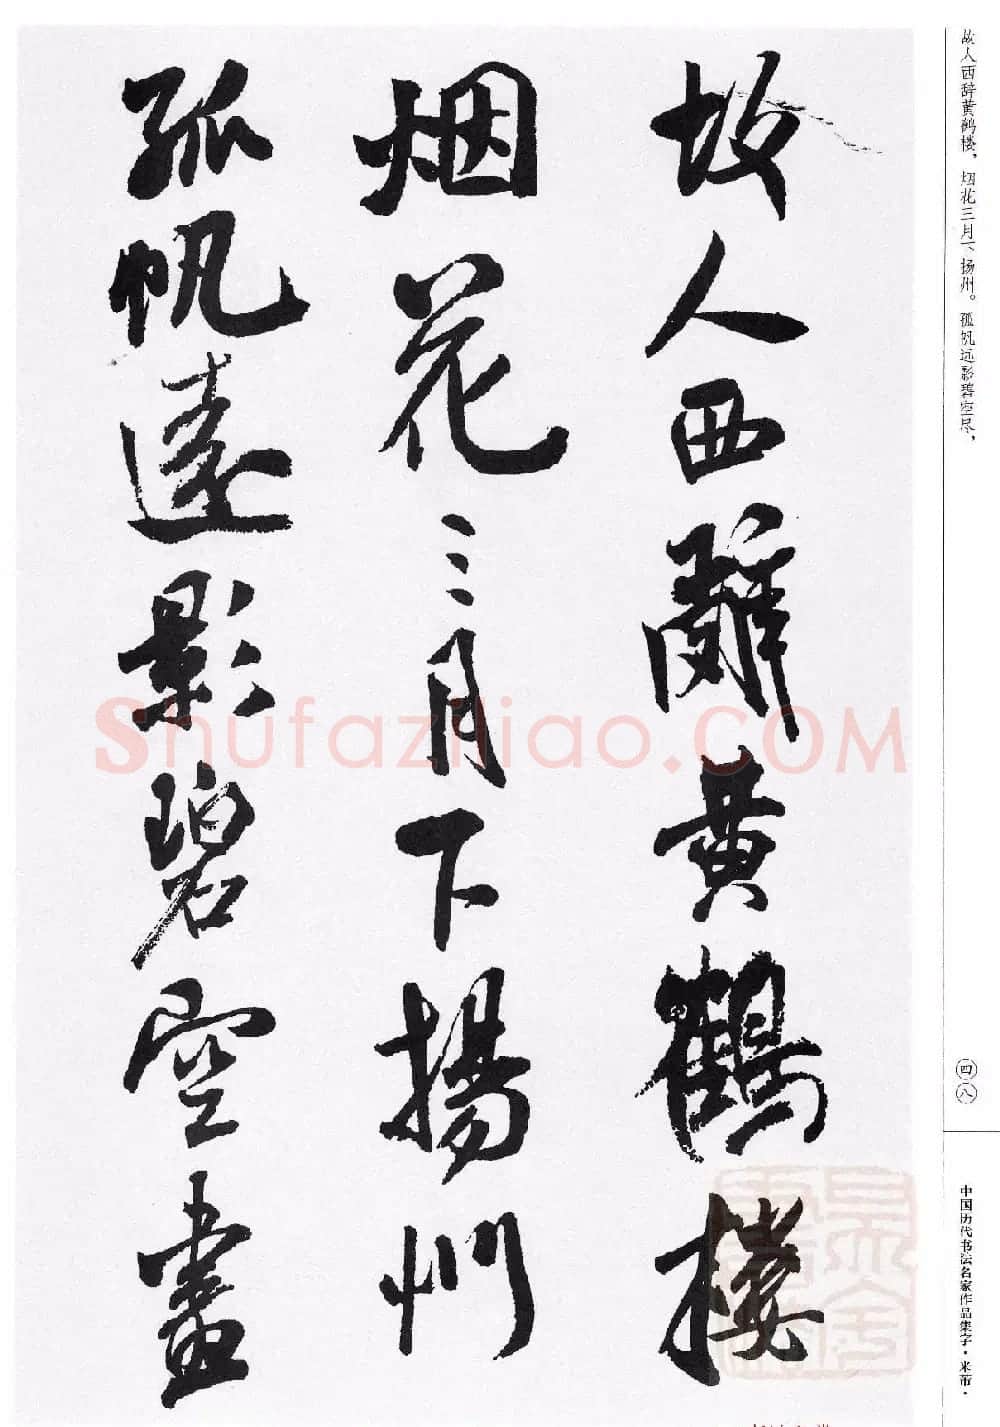 故人西辭黄鶴樓
烟花三月下揚州
孤帆遠影碧空盡
故人西辞黄鹤楼，烟花三月下扬州。孤帆远影碧空尽，
四八
中国历代书法名家作品集字·米芾·
Shufaziliao.COM